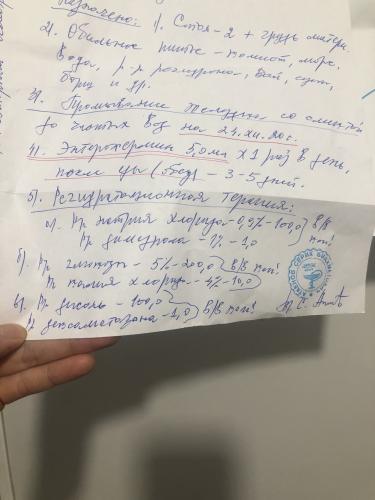 Назначено: 1. Стол-2 + грудь матери.
2). Обильное питье - компот, морс,
вода, р-р регидрона, чай,
и др.
3). Промывание желудка со
до чистых вод на 24.XII.20г.
4). Энтерожермин 5,0 мл х 1 раз в день,
после еды - 3-5 дней.
5). Регидратационная терапия:
а). Рр натрия хлорида - 0,9% - 100,0 В/В
Рр димедрола - 1% - 1,0 кап!
б). Рр глюкозы - 5% - 200,0 В/В кап!
Рр калия хлорида - 4% - 10,0
в). Рр дисоль - 100,0 В/В кап!
Рр дексаметазона - 1,0